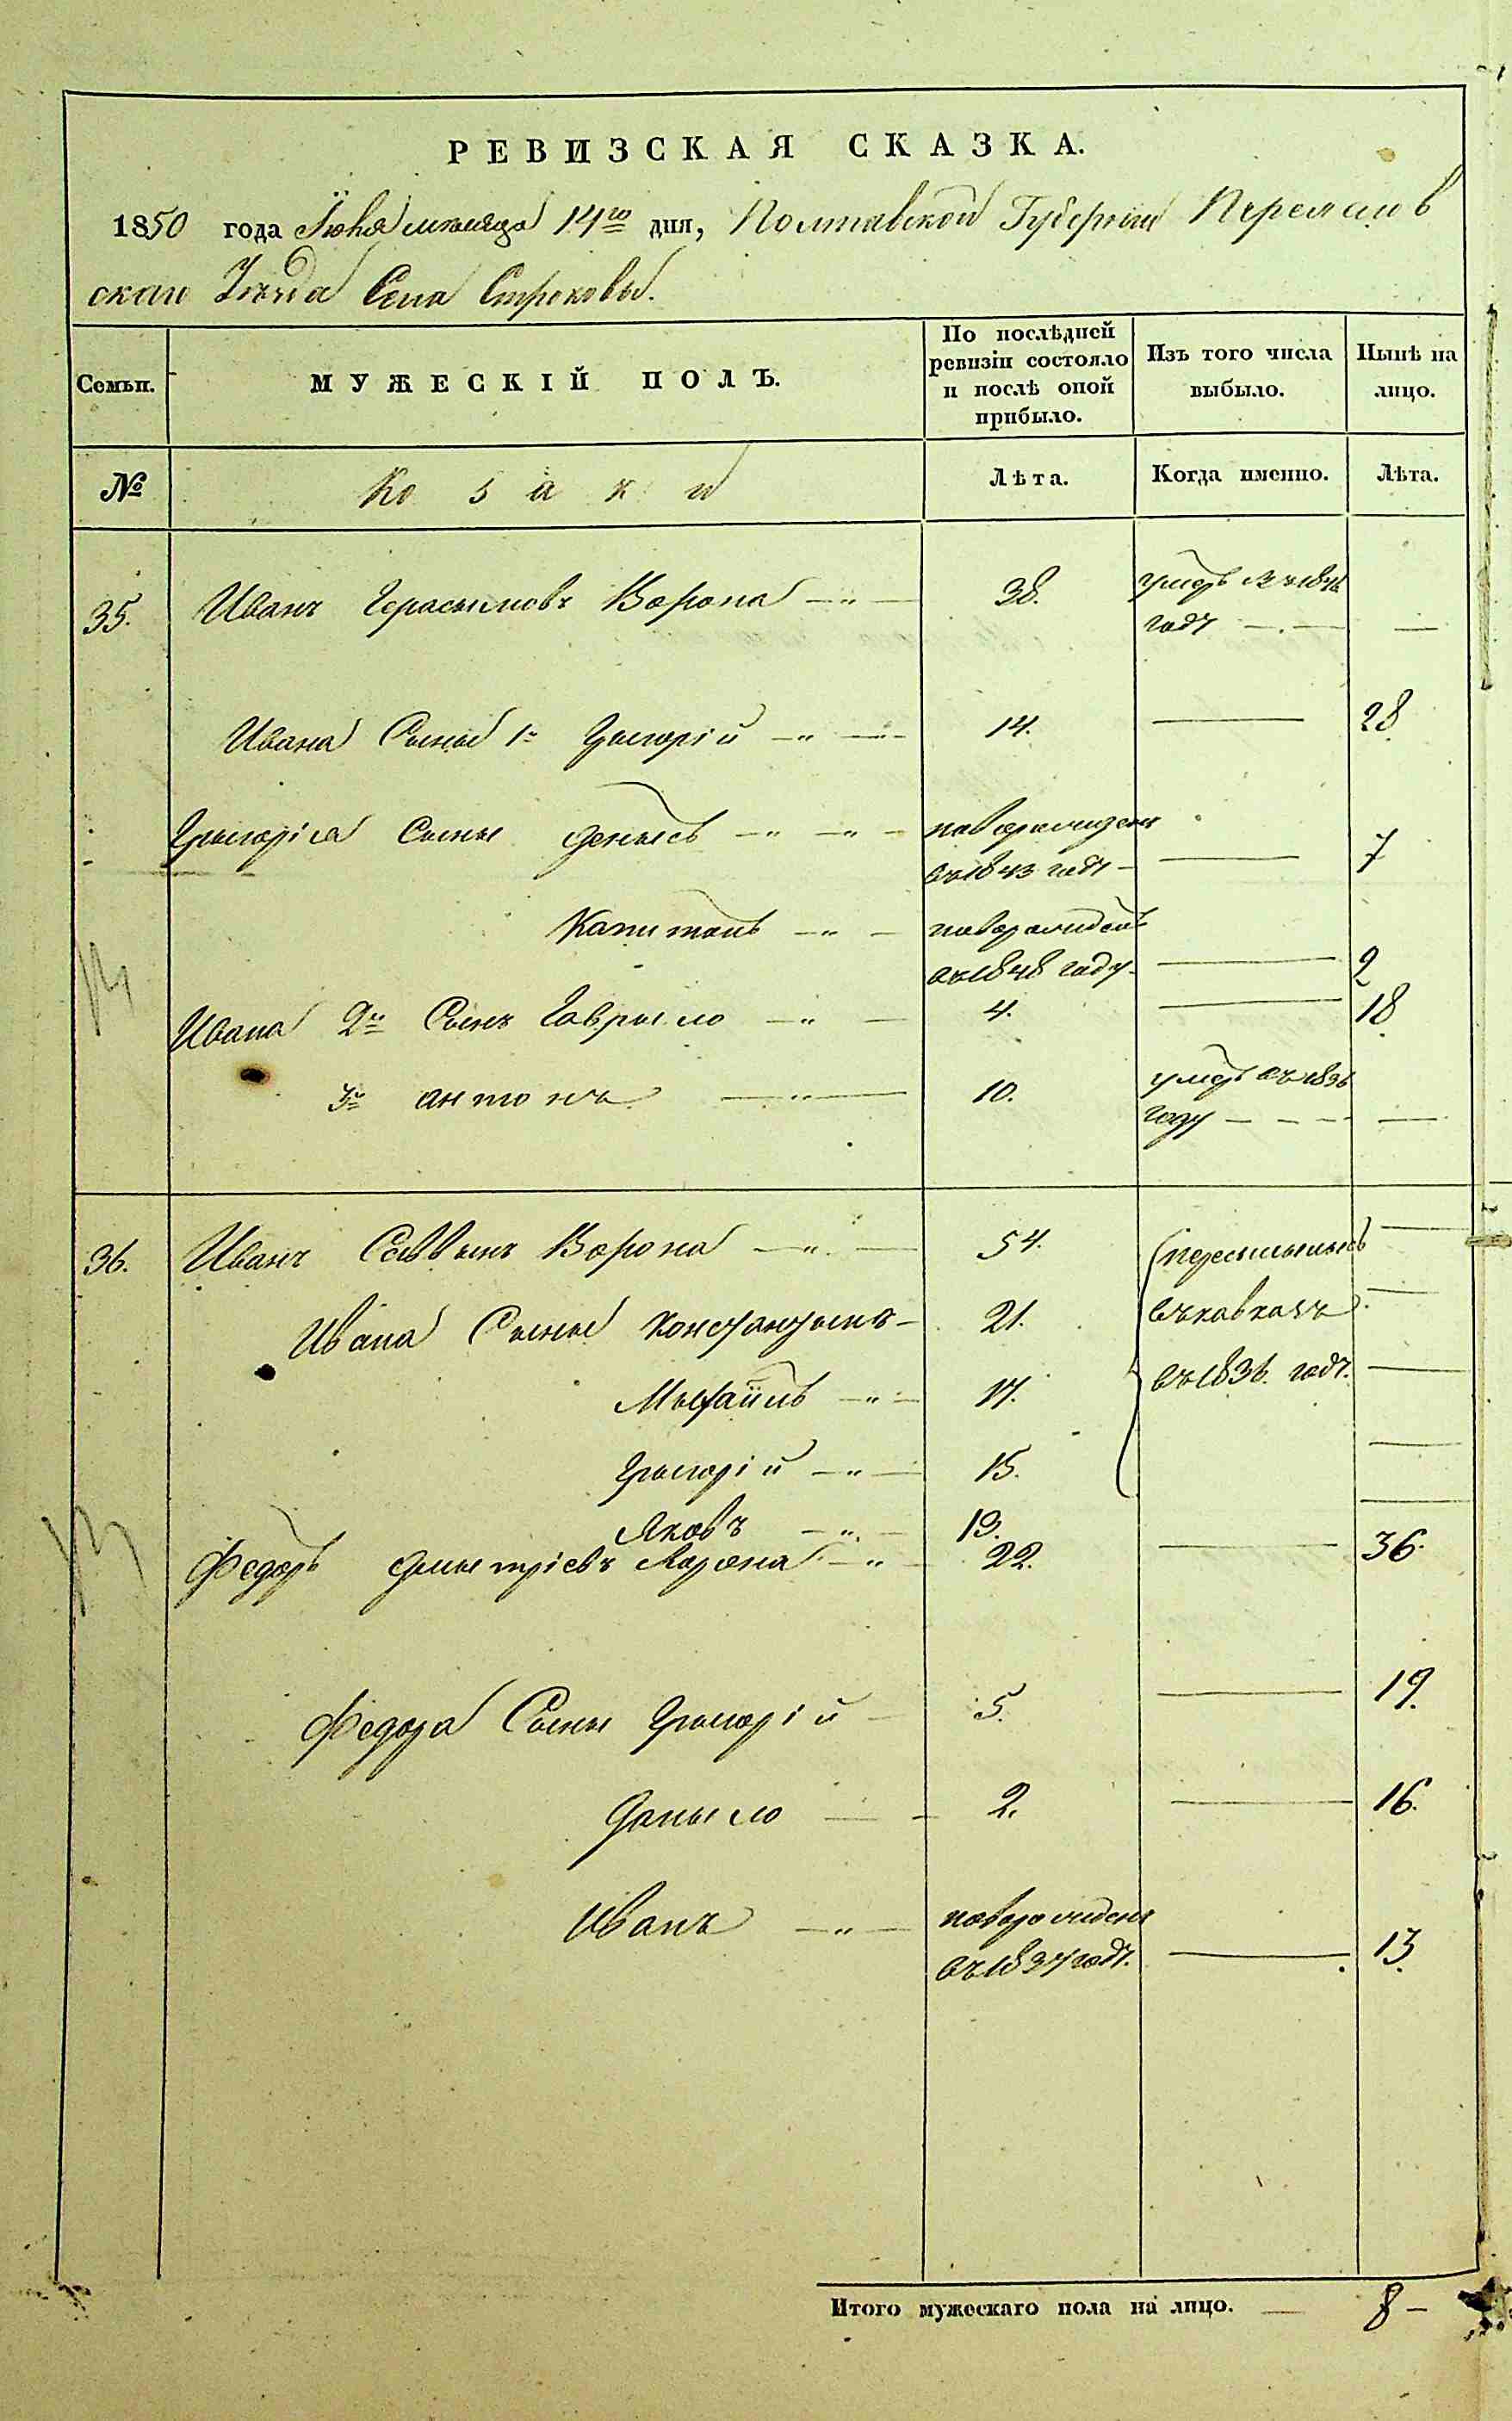 РЕВИЗСКАЯ СКАЗКА.
1850 года Июня месяца 14го дня, Полтавской Губернии Переяслов
скаго Уезда Села Строковы.
Семьи. МУЖЕСКІЙ ПОЛЪ. По послѣдней ревизіи состояло и послѣ оной прибыло. Изъ того числа выбыло. Нынѣ на лицо.
№ Козаки Лѣта. Когда именно. Лѣта.
35. Иванъ Герасымовъ Ворона — „ — 38. умеръ въ
году — . — —
Ивана Сыны 1й Грыгорій — „ — 14. — 28
Грыгорія Сыны Денысъ — „ — „ — новорожденъ
въ 1843 году — — 7
Капитонъ — „ — новорожденъ
въ 1848 году — — 2
Ивана 2й Сынъ Гаврыло — „ — 4. — 18.
3й Антонъ — „ — 10. умеръ въ 1836
году — — — — —
36. Иванъ Саввынъ Ворона — „ — 54. пересылылысь —
Ивана Сыны Константынъ — 21. въ кавказъ —
Мыхаилъ — „ — 17. въ 1836. году. —
Грыгорій — „ — 15. —
Яковъ — „ — 13. —
Федоръ Дмытріевъ Ворона — „ — 22. — 36.
Федора Сыны Грыгорій — 5. — 19.
Даныло — — 2. — 16.
Иванъ — „ — новорожденъ
въ 1837 году. — 13.
Итого мужескаго пола на лицо. — 8 —